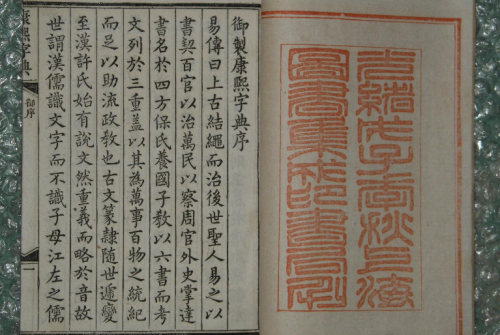 光緒戊子秋上海
圖書集成印書局
御製康熙字典序
易傳曰上古結繩而治後世聖人易之以
書契百官以治萬民以察周官外史掌達
書名於四方保氏養國子教以六書而考
文列於三重蓋以其為萬事百物之統紀
而足以助流政教也古文篆隸隨世遞變
至漢許氏始有說文然重義而略於音故
世謂漢儒識文字而不識子母江左之儒
康熙字典
御序
一